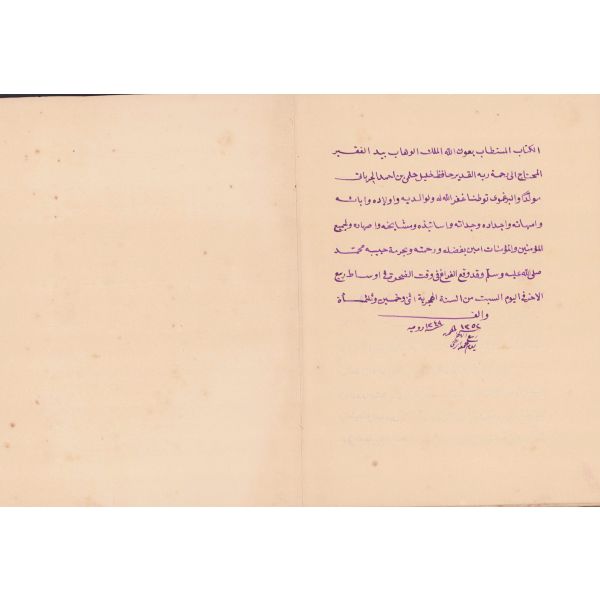 الكتاب المستطاب بعون الله الملك الوهاب بيد الفقير
المحتاج الى رحمة ربه القدير حافظ خليل حلمي بن احمد
مولدًا والبرغموى توطنا غفر الله له ولوالديه واولاده وابائه
وامهاته واجداده وجداته واساتيذه ومشايخه واصهاره ولجميع
المؤمنين والمؤمنات امين بفضله ورحمته وبحرمة حبيبه محمد
صلى الله عليه وسلم وقد وقع الفراغ في وقت الضحوة في اوساط ربيع
الاخر في اليوم السبت من السنة الهجرية اثنى وخمسين وثلثمأة
والف
١٣٥٢